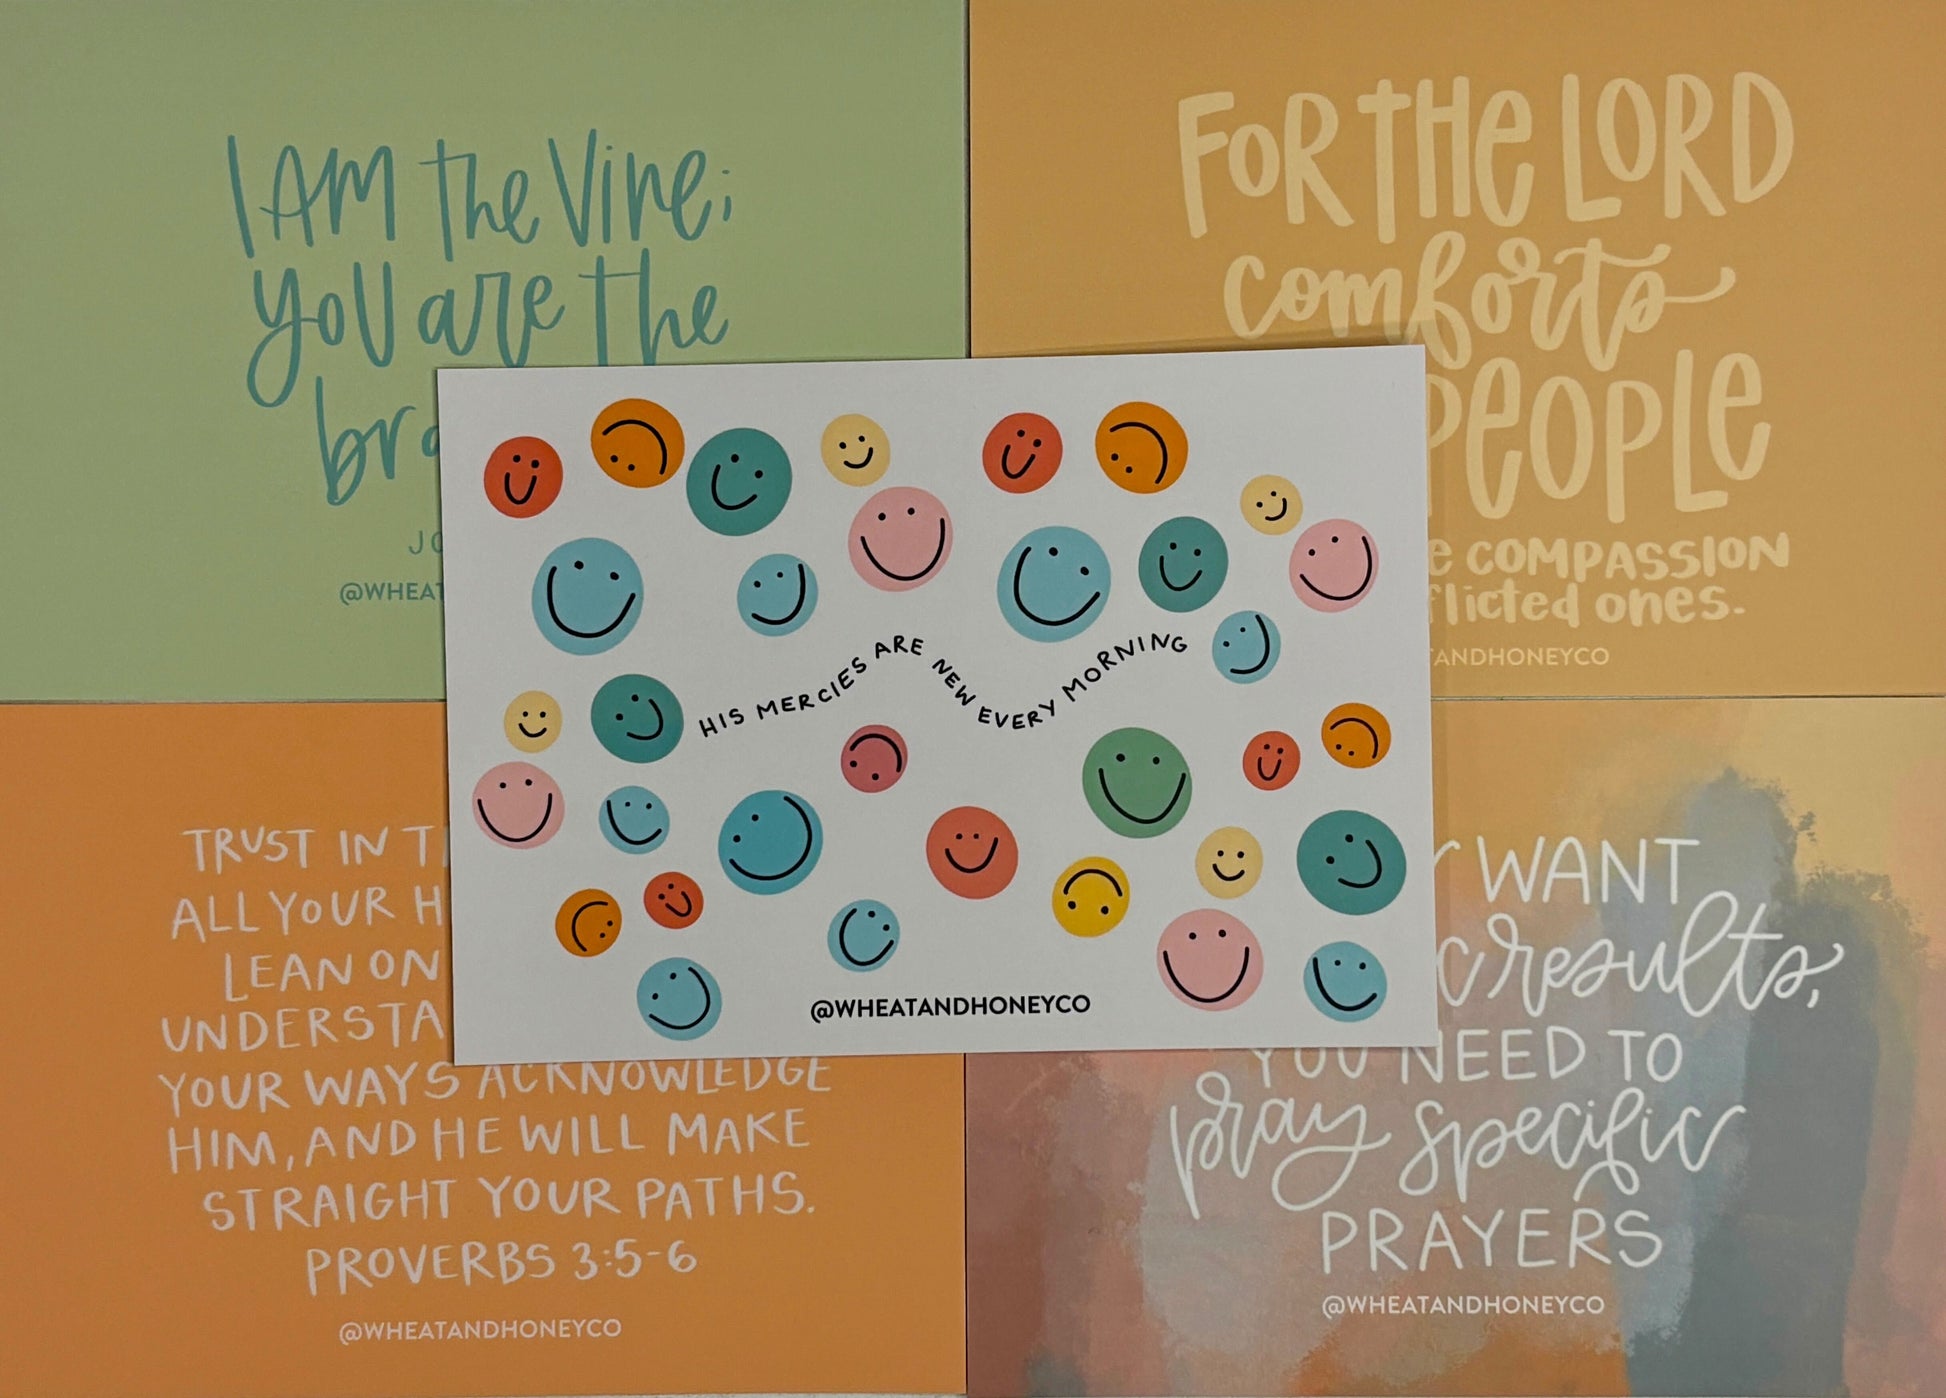 I AM the Vine;
you are the
JO
@WHEAT
FOR THE LORD
comforts
PEOPLE
COMPASSION
flicted ones.
ANDHONEYCO
HIS MERCIES ARE NEW EVERY MORNING
@WHEATANDHONEYCO
TRUST IN T
ALL YOUR H
LEAN ON
UNDERSTA
YOUR WAYS ACKNOWLEDGE
HIM, AND HE WILL MAKE
STRAIGHT YOUR PATHS.
PROVERBS 3:5-6
@WHEATANDHONEYCO
WANT
c results,
YOU NEED TO
pray specific
PRAYERS
@WHEATANDHONEYCO